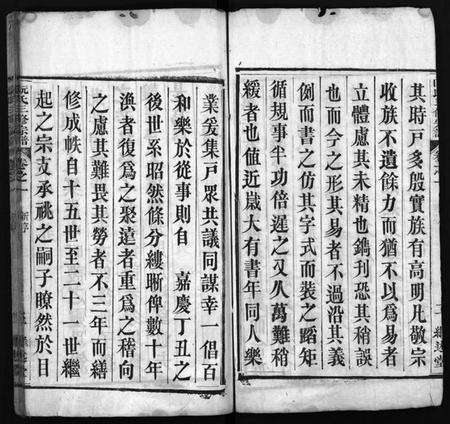 其時戶多殷實族有高明凡敬宗
收族不遺餘力而猶不以爲易者
立體慮其未精也鐫刊恐其稍誤
也而今之形其易者不過沿其義
例而書之仿其字式而裝之蹈矩
循規事半功倍遲之又久萬難稍
緩者也値近歲大有書年同人樂
業爰集戶眾共議同謀幸一倡百
和樂於從事則自嘉慶丁丑之
後世系昭然條分縷晰俾數十年
渙者復爲之聚遠者重爲之稽向
之慮其難畏其勞者不三年而繕
修成帙自十五世至二十一世繼
起之宗支承祧之嗣子瞭然於目